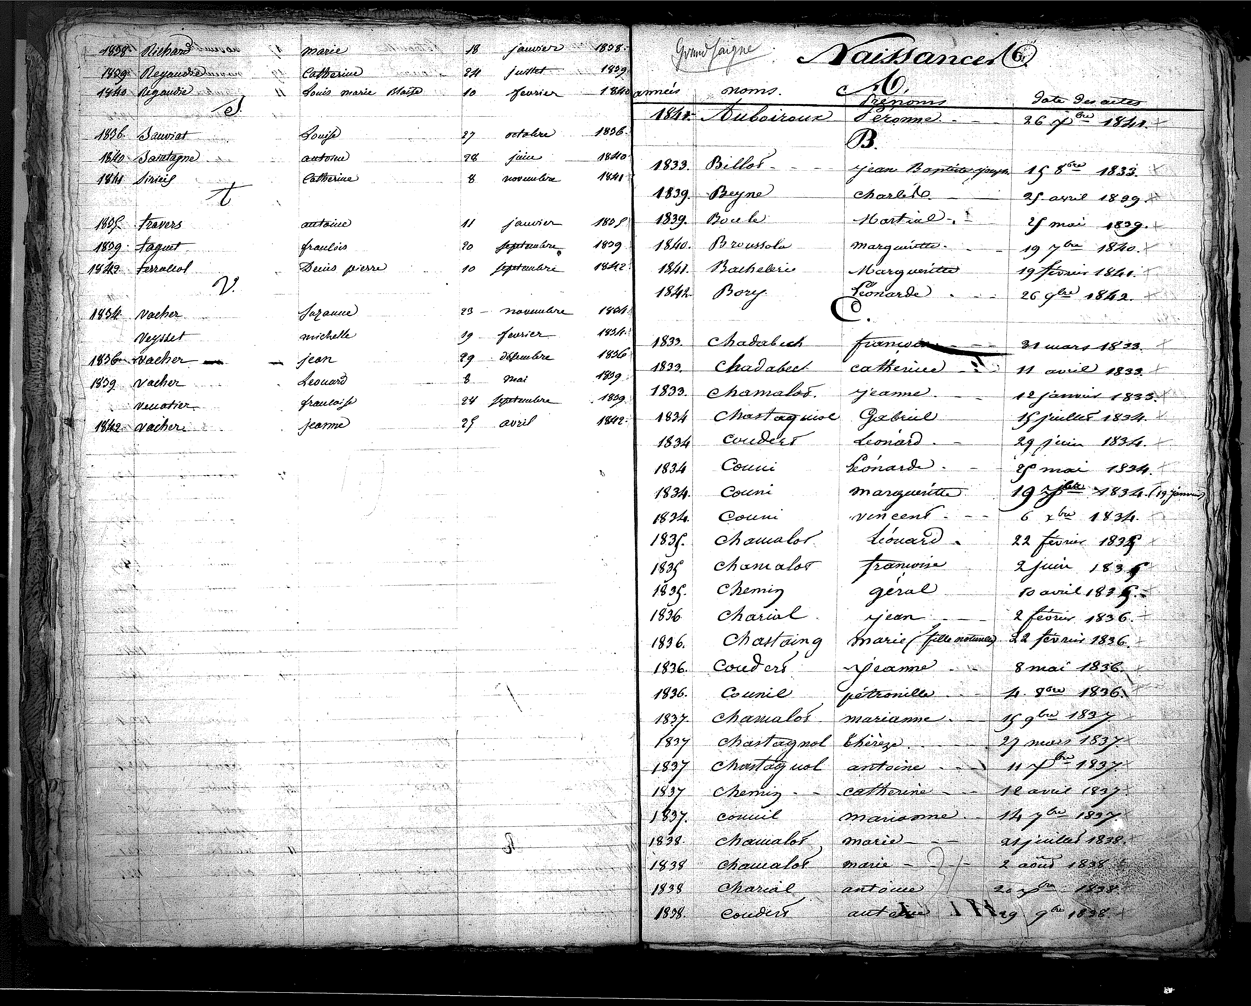 1838 Richard marie 18 janvier 1838
1839 Regaudie Catherine 24 juillet 1839
1840 Regaudie Louis marie Blaise 10 fevrier 1840
S
1836 Sauviat Louise 27 octobre 1836
1840 Santagne antoine 28 juin 1840
1841 Sirieix Catherine 8 novembre 1841
t
1835 travers antoine 11 janvier 1835
1839 taquet francois 20 septembre 1839
1842 terracol Denis pierre 10 septembre 1842
V.
1834 vacher Suzanne 23 novembre 1834
Veysset michelle 19 fevrier 1834
1836 vacher jean 29 décembre 1836
1839 vacher Léonard 8 mai 1839
venotier francoise 24 septembre 1839
1842 vacher jeanne 25 avril 1842
Grandsaigne
Naissances 6
A.
années noms. Prénoms date des actes
1841 Auboiroux Péronne 26 7bre 1841
B.
1833. Billot jean Baptiste joseph 15 8bre 1833
1839. Beyne charles 25 avril 1839
1839. Boule Martial 25 mai 1839.
1840. Broussole margueritte 19 7bre 1840.
1841. Bachelerie Margueritte 19 février 1841.
1842 Bory Léonarde 26 9bre 1842.
C.
1833. Chadabech francoise 31 mars 1833.
1833. Chadabech catherine 11 avril 1833.
1833. Chamalot. jeanne 12 janvier 1833.
1834 Chastagniol Gabriel 15 juillet 1834.
1834 Couderts Léonard. 29 juin 1834.
1834 Couni Léonarde. 25 mai 1834.
1834. Couni margueritte 19 1834. (19 janvier)
1834. Couni vincent 6 xbre 1834.
1835. Chamalot Léonard. 22 février 1835
1835 Chamalot francoise 2 juin 1835
1835. Chemin géral 10 avril 1835.
1836 Charial. jean 2 février 1836.
1836. Chastaing marie (fille naturelle) 22 février 1836.
1836. Couderts jeanne 8 mai 1836.
1836. Counil pétronille 4. 8bre 1836.
1837. Chamalot marianne 15 9bre 1837
1837 Chastagnol thérèze 27 mars 1837
1837 Chastagnol antoine 11 7bre 1837.
1837 Chemin catherine 12 avril 1837
1837. Counil marianne 14 7bre 1837
1838. Chamalot marie 21 juillet 1838.
1838 Chamalot marie 2 août 1838
1838 Charial antoine 20 1838
1838. Couderts antoine 29 9bre 1838.